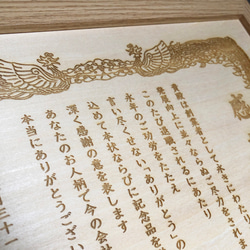 感
貴殿は創業者として永きにわた
発展向上に並々ならぬご尽力を
このたび退職されるにあたり
永年のご功労をたたえ
言い尽くせないありがとうの
込めて本状ならびに記念品を
深く感謝の意を表します
あなたのお人柄で今の会社
本当にありがとうござい
三十一